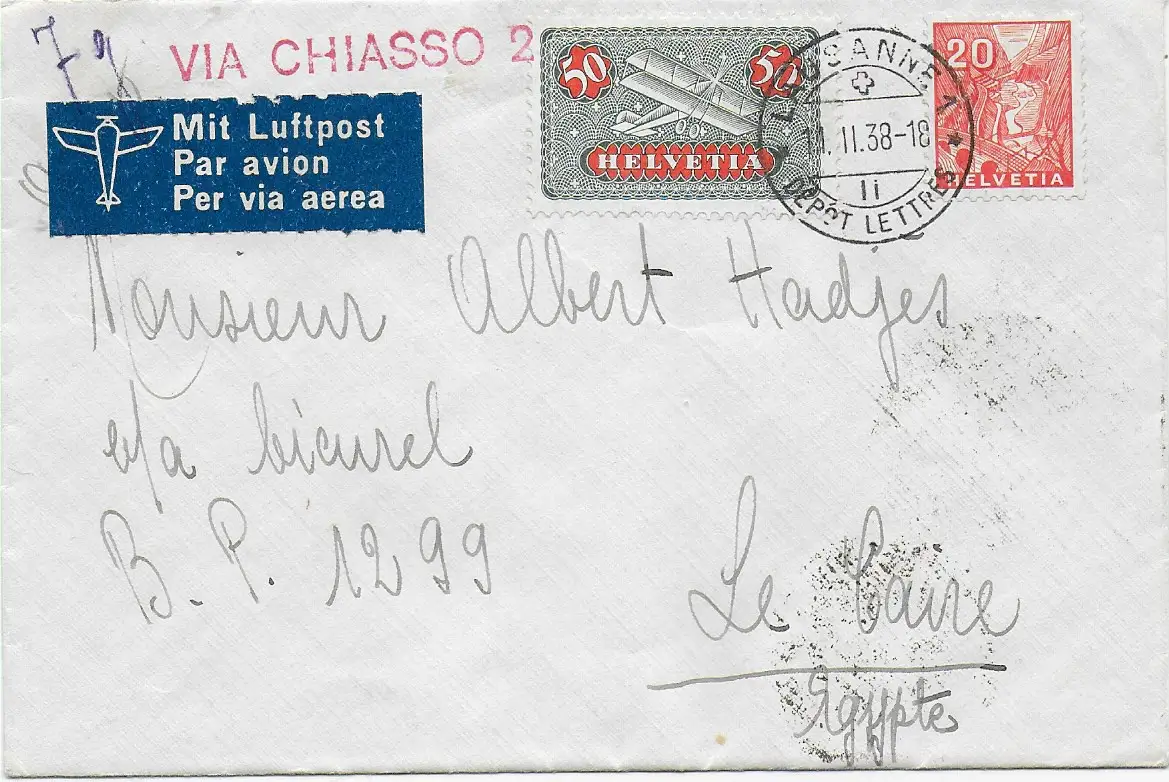 7 g
VIA CHIASSO 2
Mit Luftpost
Par avion
Per via aerea
50 50
HELVETIA
LAUSANNE 1
II.38-18
li
DÉPÔT LETTRES
20
HELVETIA
Monsieur Albert Hadjès
B. P. 1299
Le Caire
Egypte